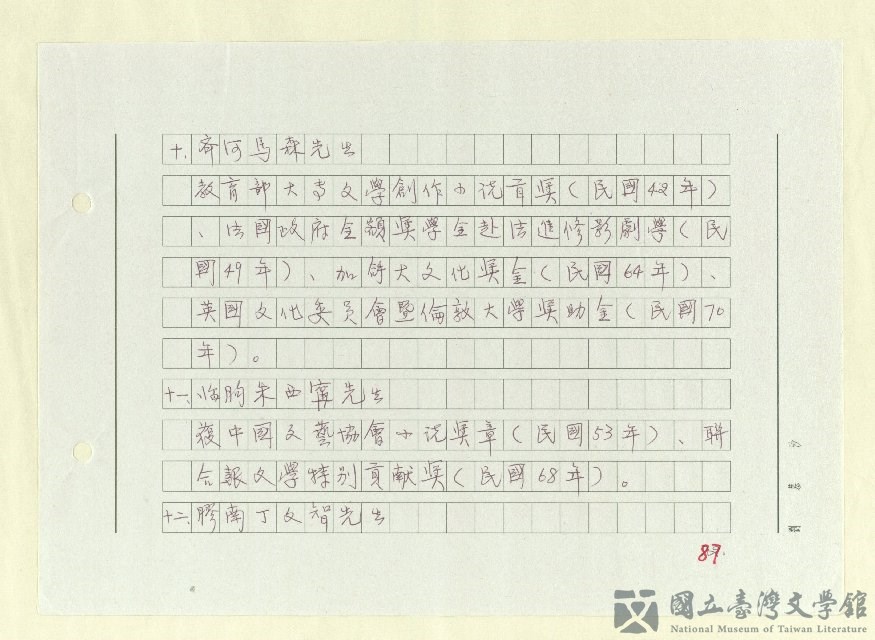 十、齊河馬森先生
教育部大專文學創作小说首奖(民國42年)
、法國政府全額奖學金赴法進修影劇學(民
國49年)、加拿大文化奖金(民國64年)、
英國文化委员會暨倫敦大學奖助金(民國70
年)。
十一、临朐朱西寧先生
獲中國文藝協會小说奖章(民國53年)、聯
合報文學特别貢献奖(民國68年)。
十二、膠南丁文智先生
87.
國立臺灣文學館
National Museum of Taiwan Literature